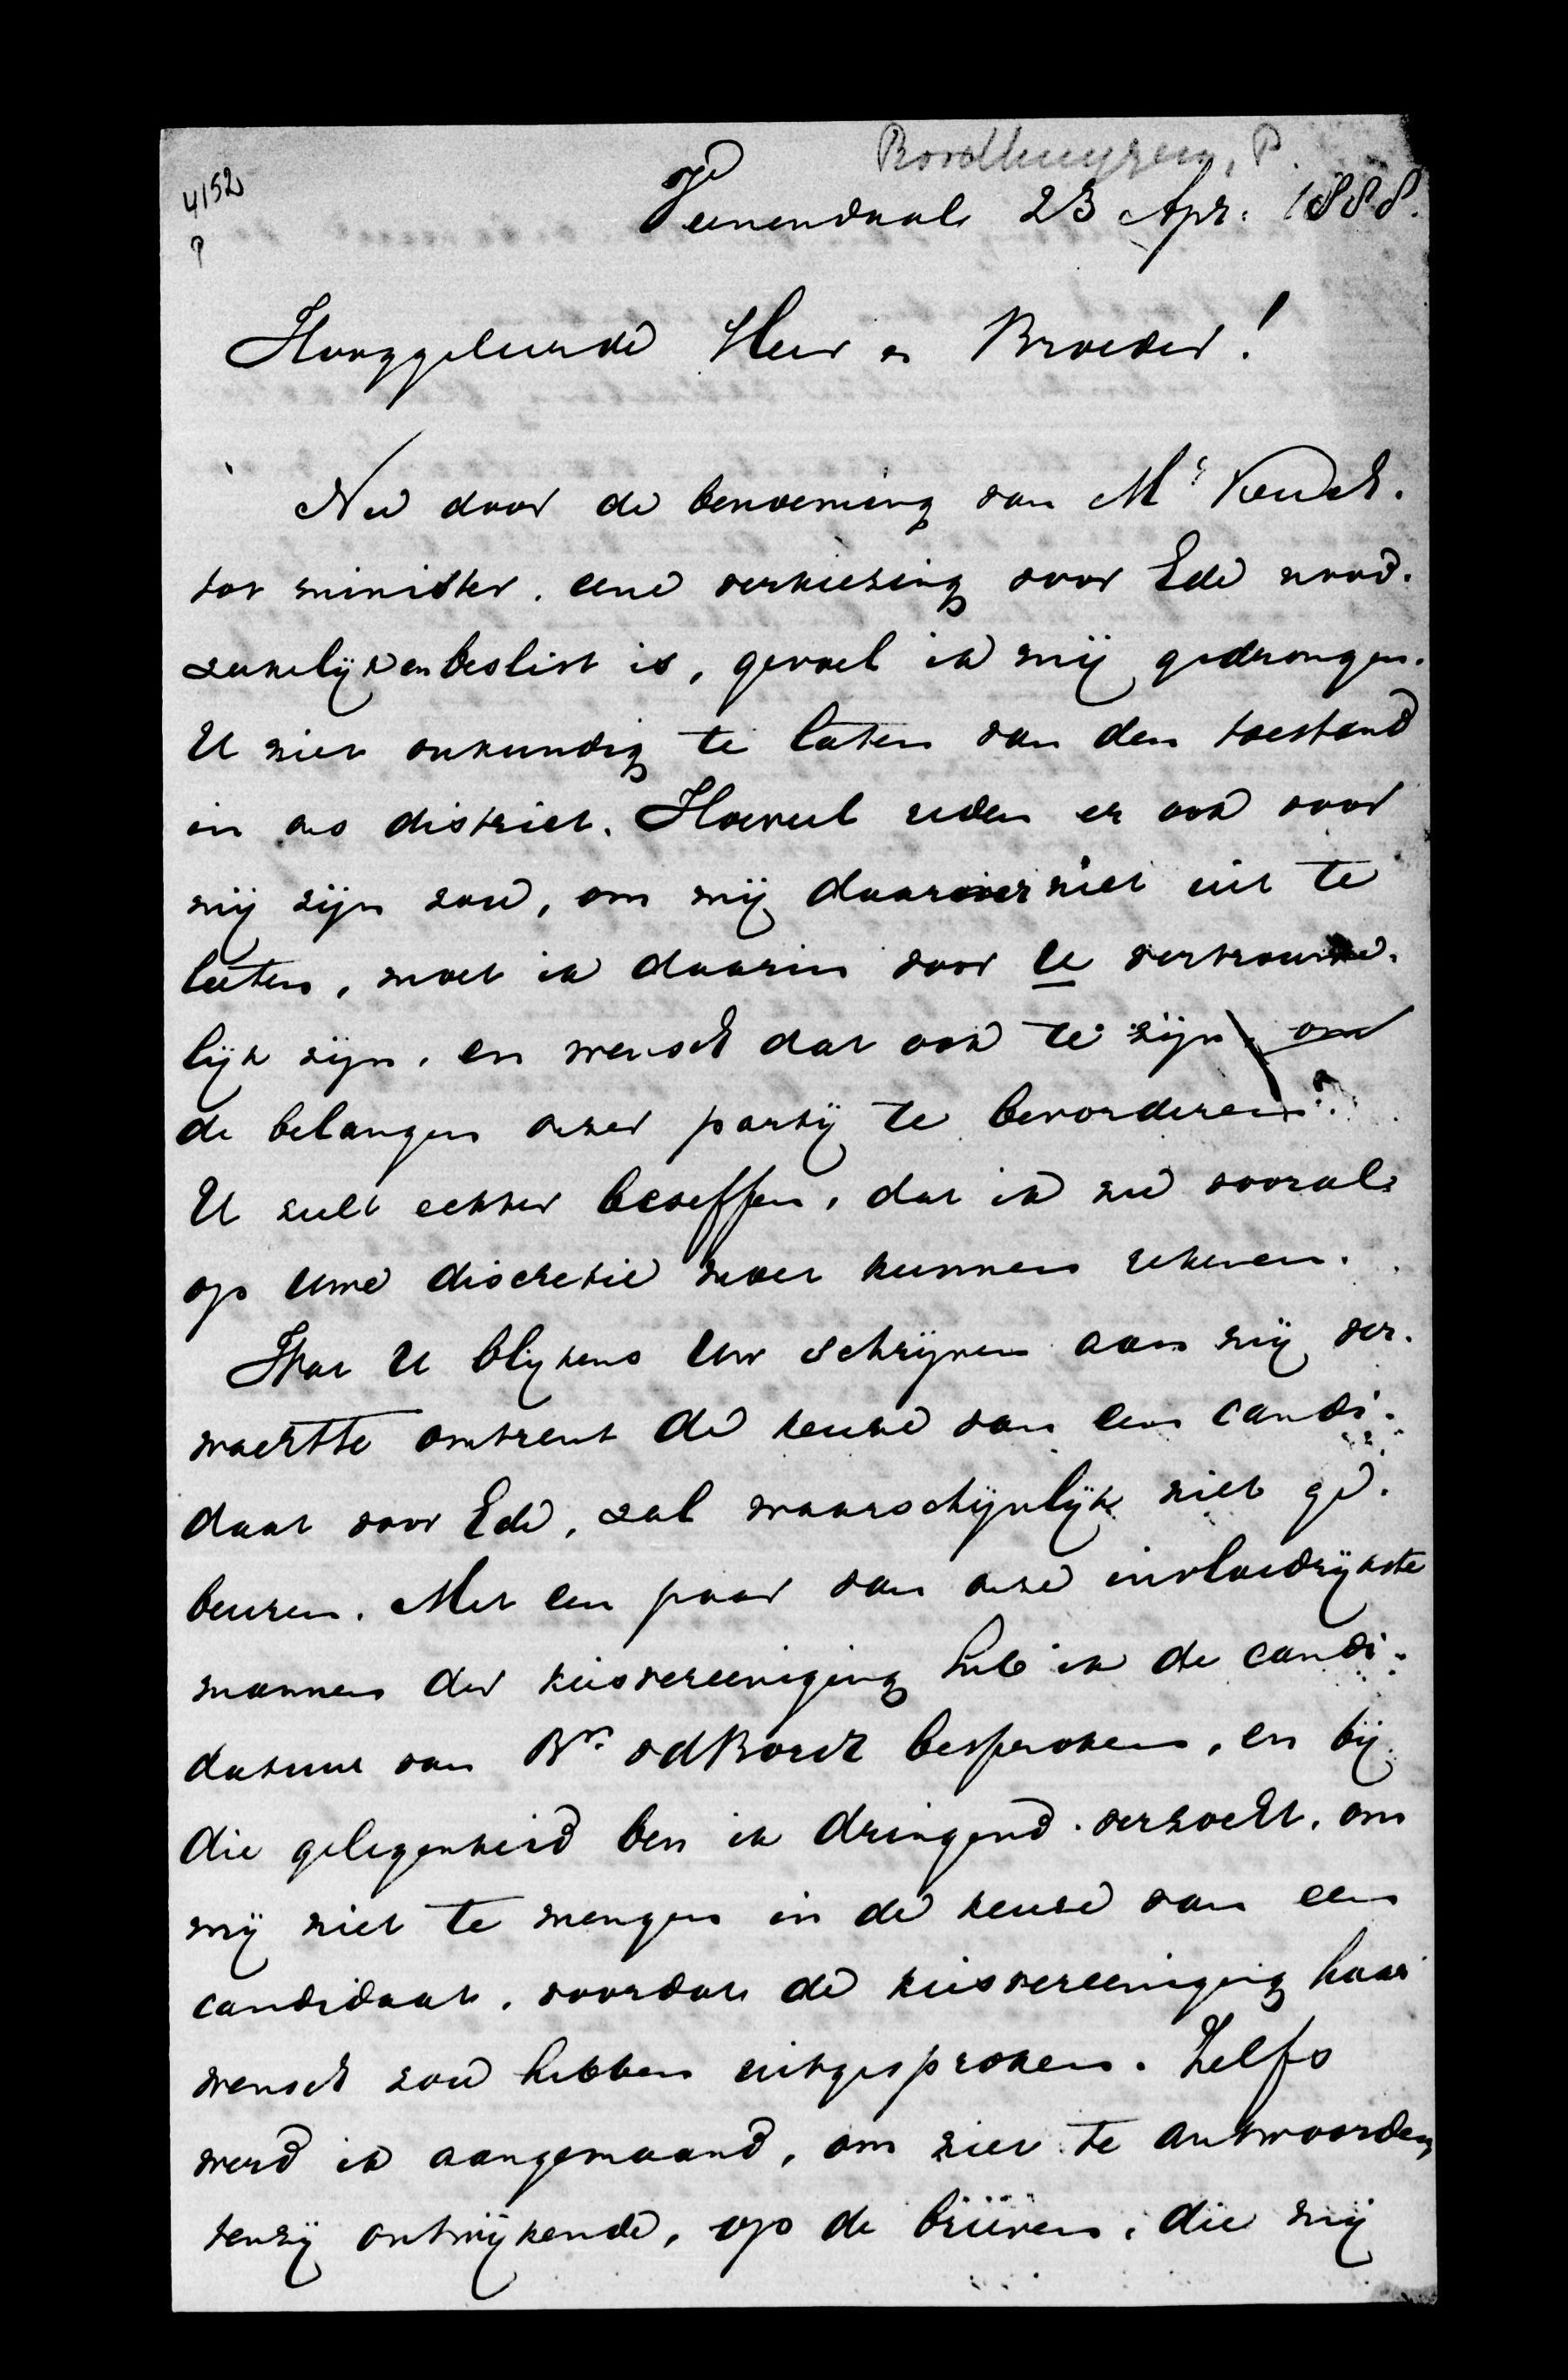 Roodhuyzen, P.
4152
P
Veenendaal 23 Apr: 1888.
Hooggeleerde Heer en Broeder!
Nu door de benoeming van Mr Keuch.
tot minister, eene verkiezing voor Ede nood-
zakelijk en beslist is, gevoel ik mij gedrongen
U niet onkundig te laten van den toestand
in ons district. Hoeveel reden er ook voor
mij zijn zou, om mij daarover niet uit te
laten, moet ik daarin voor U vertrouwe-
lijk zijn, en wensch dat ook te zijn, om
de belangen onzer partij te bevorderen.
U zult echter beseffen, dat ik nu vooral
op Uwe discretie moet kunnen rekenen.
Wat U blijkens Uw schrijven aan mij ver-
wachtte omtrent de keuze van een candi-
daat voor Ede, zal waarschijnlijk niet ge-
beuren. Met een paar van onze invloedrijkste
mannen der kiesvereeniging heb ik de candi-
datuur van Bn. vd Borch besproken, en bij
die gelegenheid ben ik dringend verzocht, om
mij niet te mengen in de keuze van een
candidaat, voordat de kiesvereeniging haar
wensch zou hebben uitgesproken. Zelfs
werd ik aangemaand, om niet te antwoorden,
tenzij ontwijkende, op de brieven, die mij